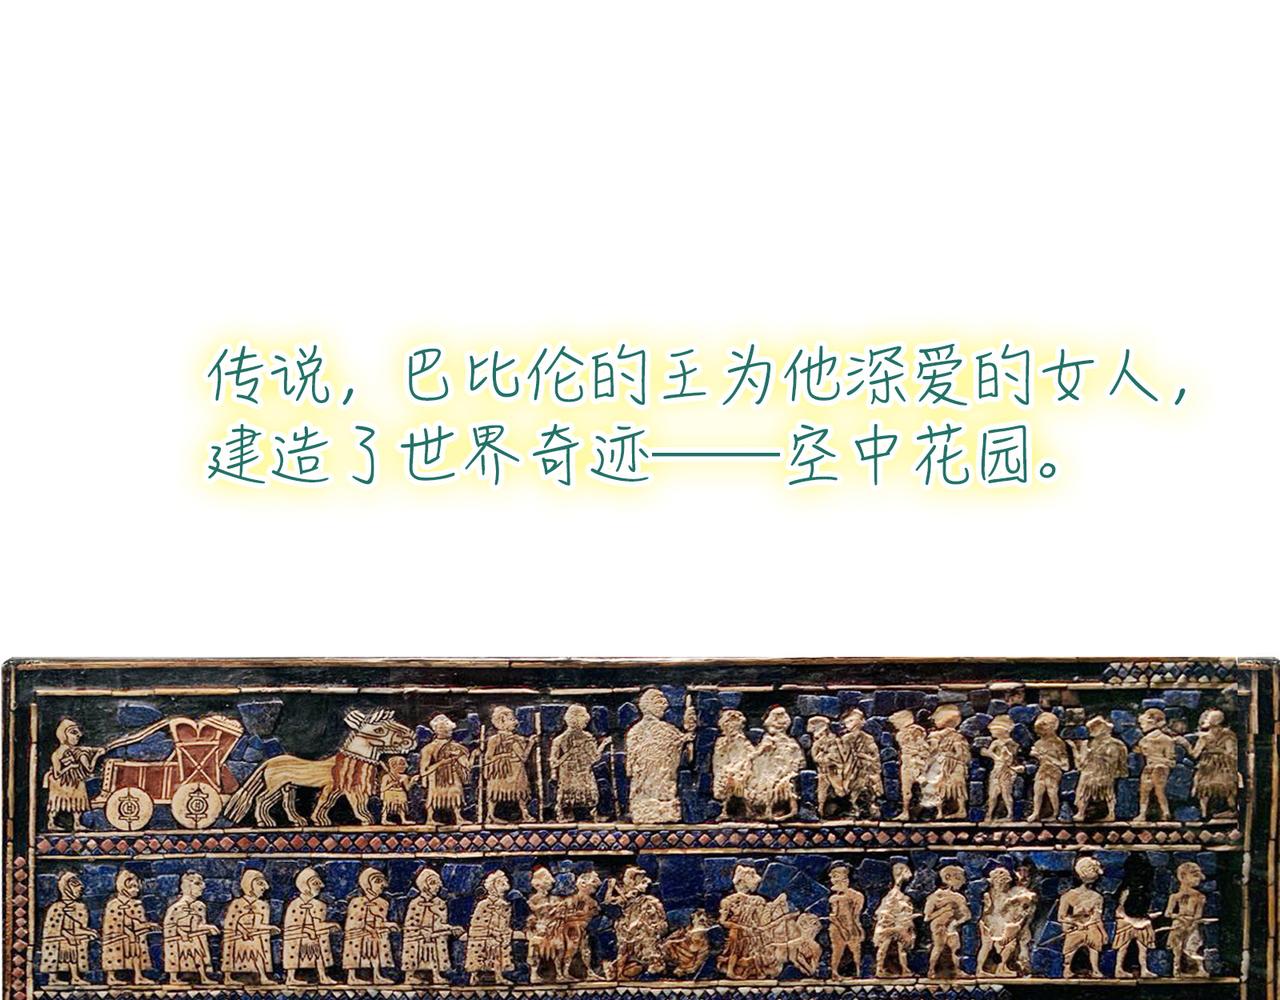 传说，巴比伦的王为他深爱的女人，
建造了世界奇迹——空中花园。